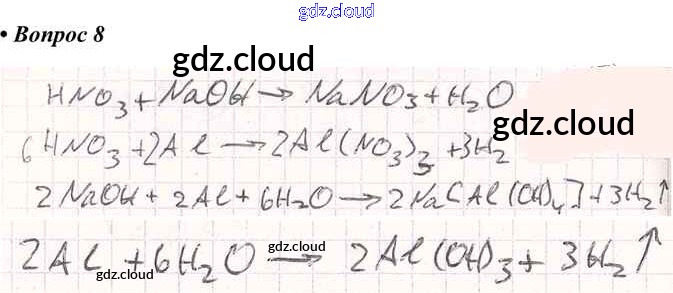 gdz.cloud
• Вопрос 8
gdz.cloud
HNO₃ + NaOH → NaNO₃ + H₂O
gdz.cloud
6HNO₃ + 2Al → 2Al(NO₃)₃ + 3H₂
2NaOH + 2Al + 6H₂O → 2Na[Al(OH)₄] + 3H₂↑
gdz.cloud
2Al + 6H₂O → 2Al(OH)₃ + 3H₂↑
gdz.cloud